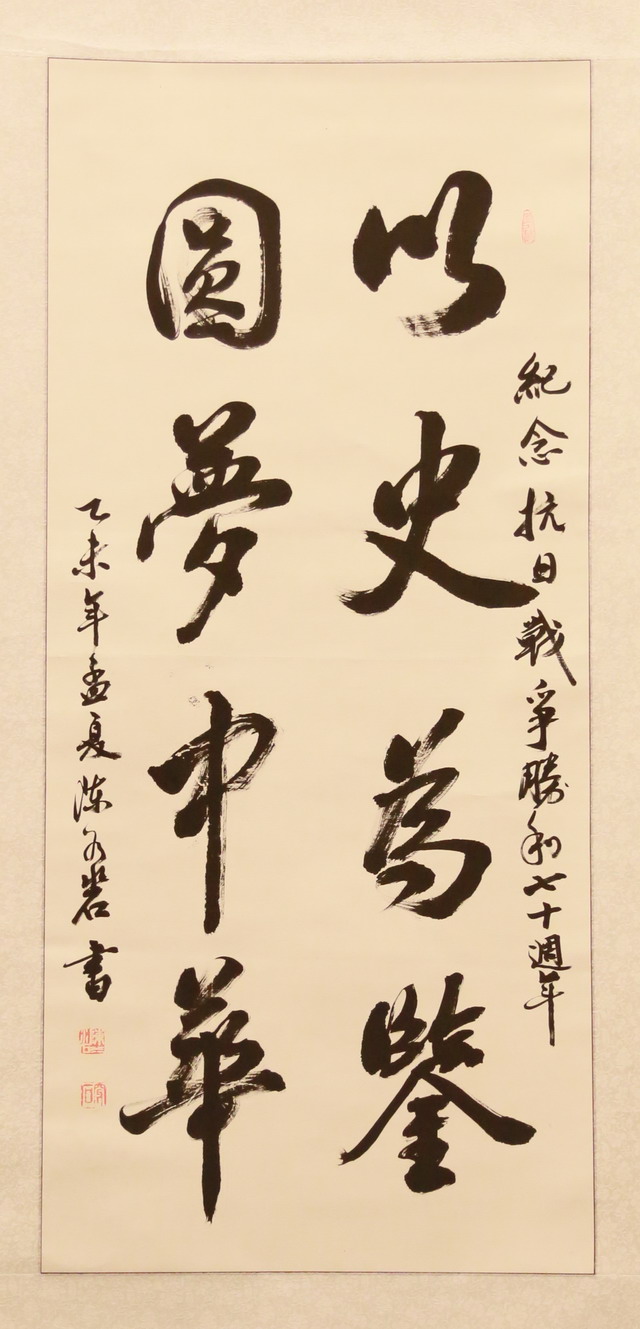 紀念抗日戰爭勝利七十週年
以史為鑒
圓夢中華
乙未年孟夏陳 書